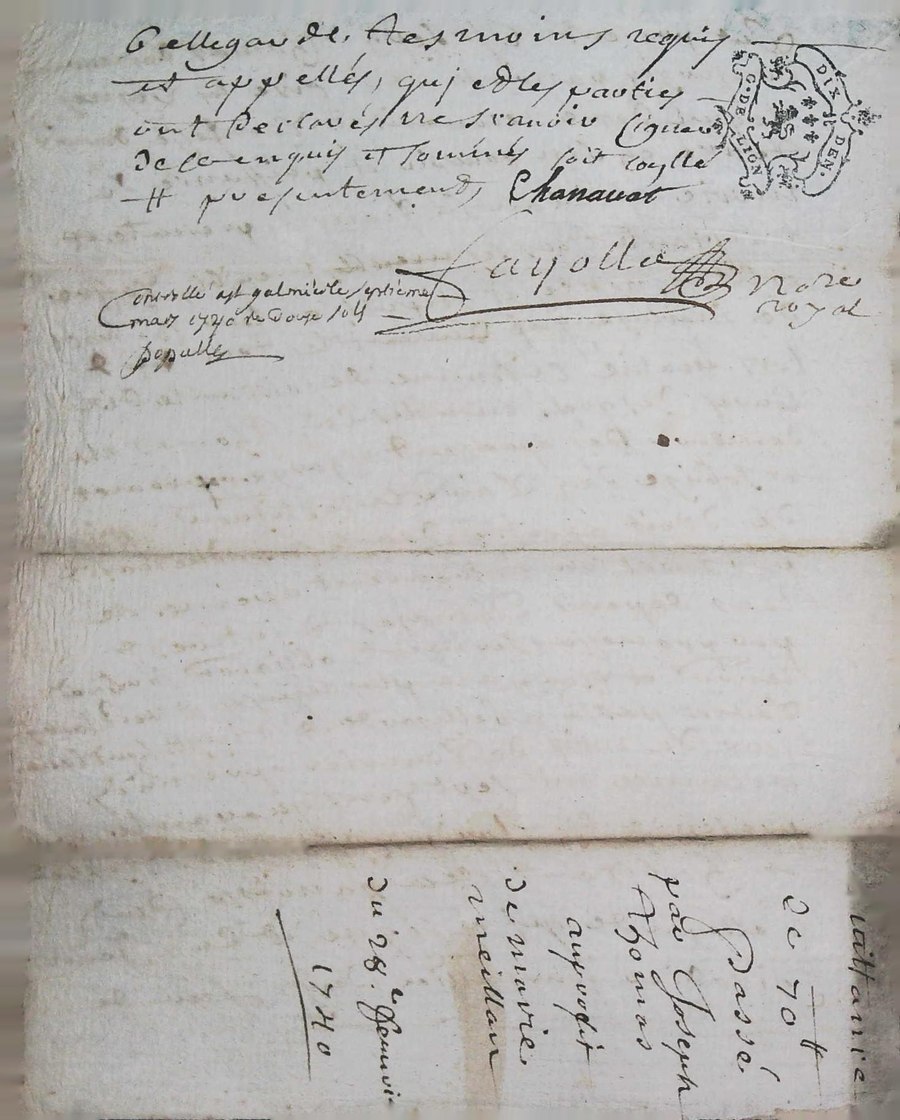 Bellegarde, tesmoins requis
et appellés, qui et les parties
ont declarés ne scavoir signer
de ce enquis et sommés soit scellé
# presentement Chanavat
Fayolle No.re
royal
Controllé a st galmier le septieme
mars 1740 re douze sols
populle
G. DE LION
DIX DEN.
quittance
de 70 #
passé
par Joseph
thomas
au profit
de marie
meillan
du 28.e Janvi
1740